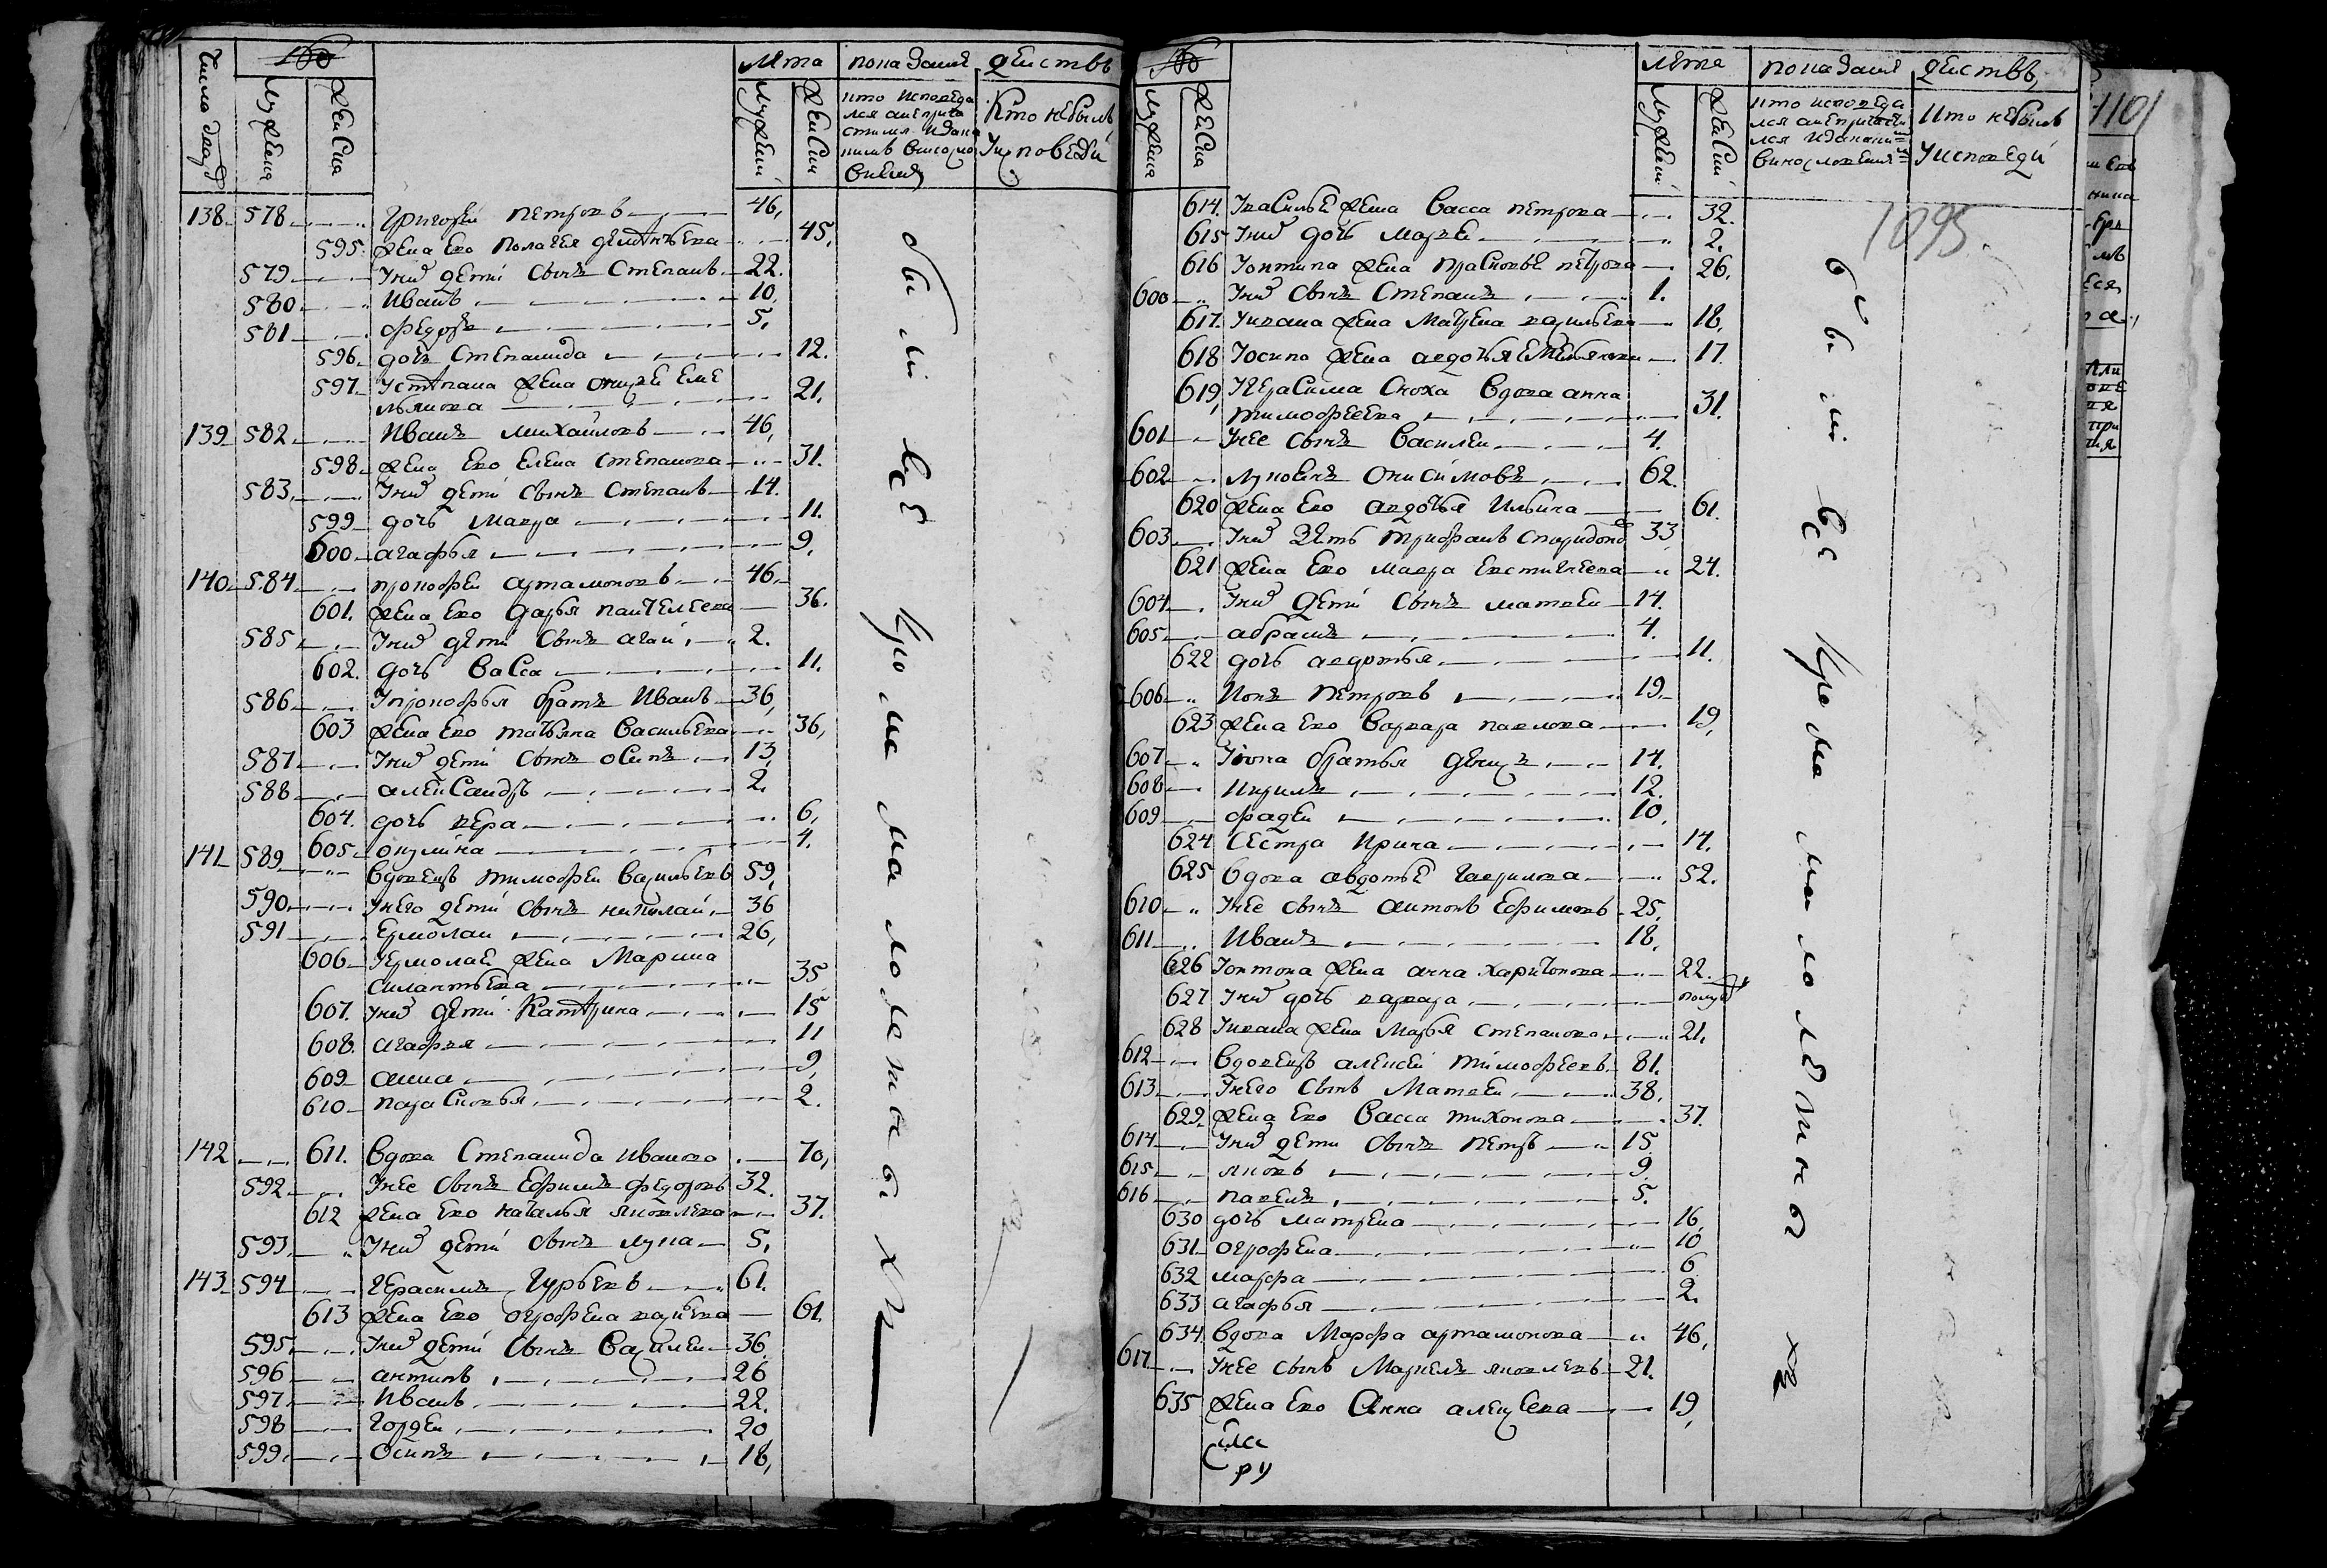 Число дворов
№
Мужеска
Женска
Лета
Мужеск
Женски
показание действъ
кто исповеда
лся
Кто небылъ
Уисповеди
138 578 Григорей Петровъ 46
595 жена Ево Полагея деменьтьева 45
579 Унихъ дети сынъ Степанъ 22
580 Иванъ 10
581 Федоръ 5
596 дочь Степанида 12
597 Устепана жена Еме
льянова 21
139 582 Иванъ Михайловъ 46
598 жена Ево Елена Степанова 31
583 Унихъ дети сынъ Степанъ 14
599 дочь Мавра 11
600 агафья 9
140 584 прокофей артамоновъ 46
601 жена Ево дарья пантелеева 36
585 Унихъ дети сынъ агай 2
602 дочь Васса 11
586 Упрокофья братъ Иванъ 36
603 жена Ево татьяна Васильева 36
587 Унихъ дети сынъ осипъ 13
588 александръ 2
604 дочь вера 6
605 окулина 4
141 589 Вдовецъ тимофей Васильевъ 59
590 Унего дети сынъ николай 36
591 Ермолай 26
606 Уермолая жена Марина
силантьева 35
607 Унихъ дети Катерина 15
608 агафья 11
609 анна 9
610 парасковья 2
142 611 Вдова Степанида Иванова 70
592 Унее сынъ Ефимъ федоровъ 32
612 жена Ево наталья яковлева 37
593 Унихъ дети сынъ лука 5
143 594 герасимъ Гурьевъ 61
613 жена Ево огрофена 61
595 Унихъ дети сынъ Василей 36
596 антипъ 26
597 Иванъ 22
598 Гордей 20
599 Осипъ 18
были все кроме малолетныхъ
№
Мужеска
Женска
лета
Мужеск
Женски
показание действъ
кто исповеда
лся
кто небылъ
Уисповеди
1095
614 Увасилья жена Васса петрова 32
615 Унихъ дочь Марья 2
616 Уонтипа жена прасковья петрова 26
600 Унихъ сынъ Степанъ 1
617 Уивана жена Матрена васильева 18
618 Уосипа жена авдотья Емельянова 17
619 Угерасима сноха вдова анна
тимофеева 31
601 Унее сынъ Василей 4
602 лукоянъ Онисимовъ 62
620 жена Ево авдотья Ильина 61
603 Унихъ зять трифанъ спиридоновъ 33
621 жена Ево мавра Евстигнеева 24
604 Унихъ дети сынъ матвей 14
605 абрамъ 4
622 дочь авдотья 11
606 Ионъ петровъ 19
623 жена Ево Варвара павлова 19
607 Уиона братья денисъ 14
608 Кирилъ 12
609 фадей 10
624 Сестра Ирина 14
625 Вдова авдотья Гаврилова 52
610 Унее сынъ антонъ Ефимовъ 25
611 Иванъ 18
626 Уонтона жена анна харитонова 22
627 Унихъ дочь варвара полуг
628 Уивана жена Марья Степанова 21
612 Вдовецъ алексей тимофеевъ 81
613 Унего сынъ Матвей 38
629 жена Ево Васса тихонова 37
614 Унихъ дети сынъ петръ 15
615 яковъ 9
616 павелъ 5
630 дочь матрена 16
631 огрофена 10
632 марфа 6
633 агафья 2
634 вдова Марфа артамонова 46
617 Унее сынъ Маркелъ яковлевъ 21
635 жена Ево Анна алексеева 19
были все кроме малолетныхъ
1101